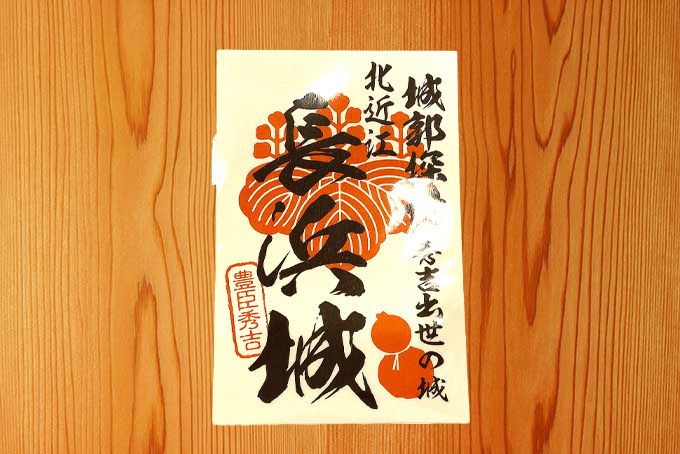 城郭探
秀吉出世の城
北近江
長浜城
豊臣秀吉